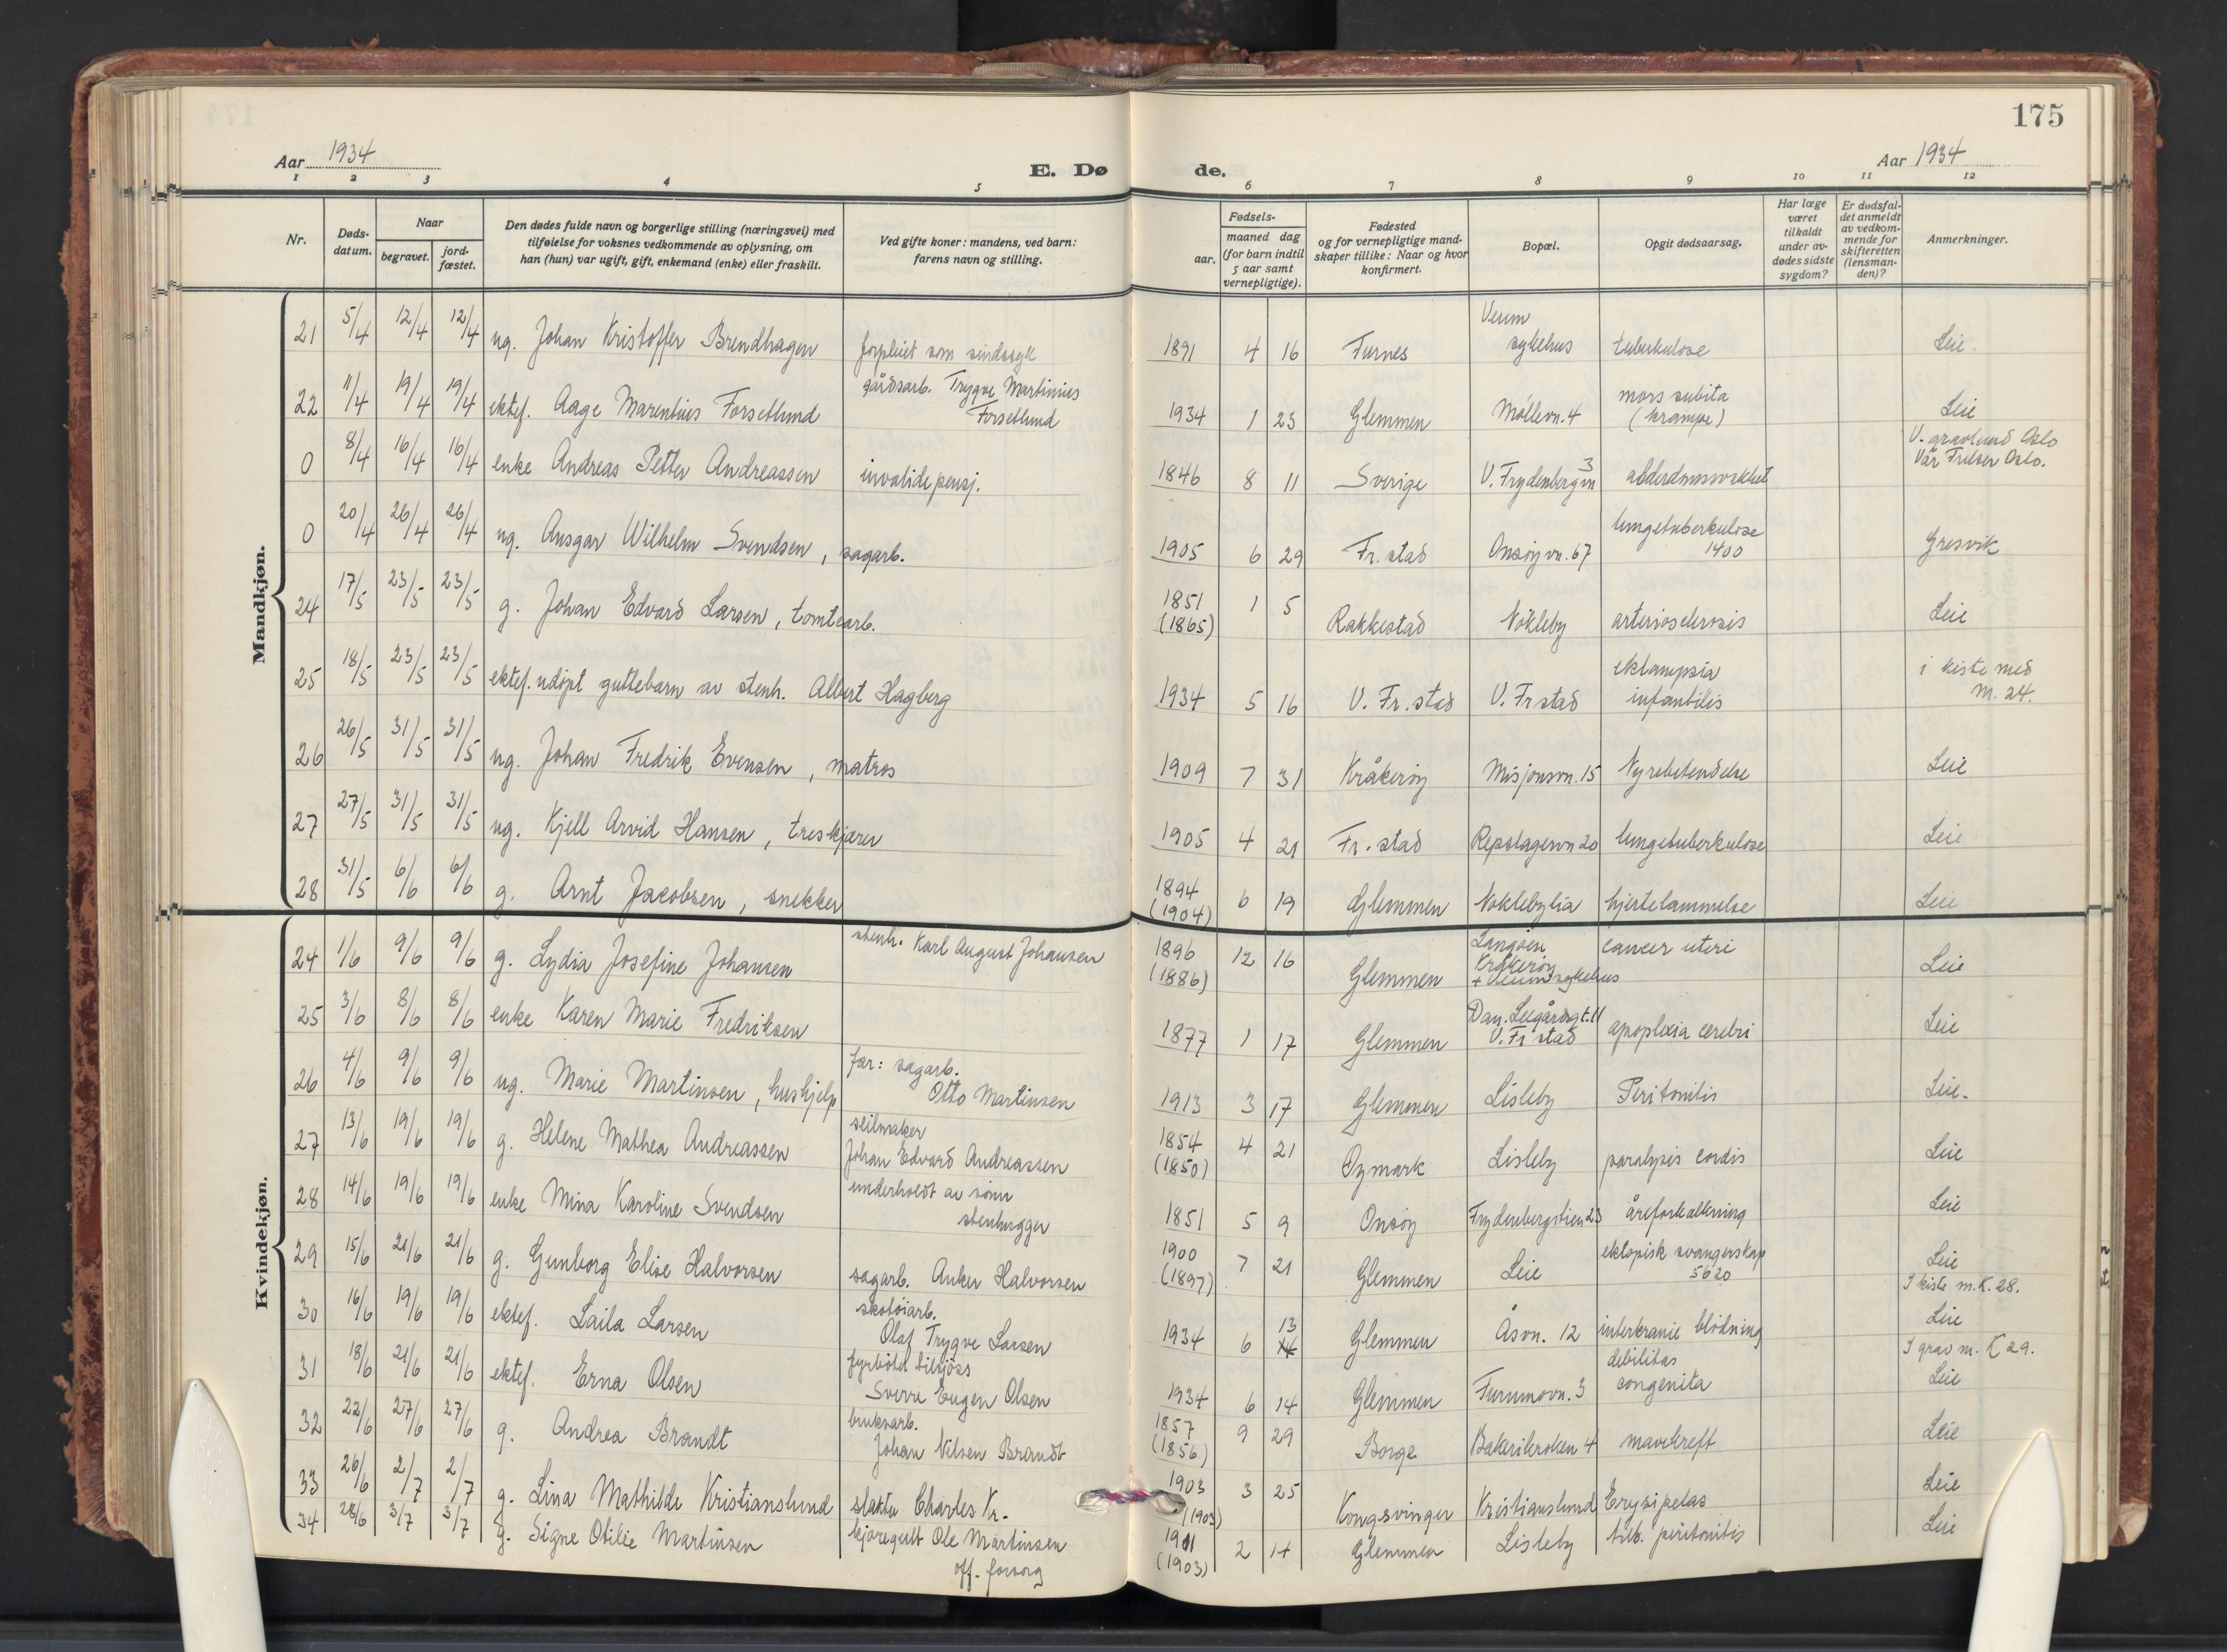 175
Aar 1934
E. Dø
de.
Aar 1934
1 2 3 4 5 6 7 8 9 10 11 12
Nr.
Døds-
datum.
Naar
begravet.
jord-
fæstet.
Den dødes fulde navn og borgerlige stilling (næringsvei) med
tilføielse for voksnes vedkommende av oplysning, om
han (hun) var ugift, gift, enkemand (enke) eller fraskilt.
Ved gifte koner: mandens, ved barn:
farens navn og stilling.
Fødsels-
aar.
maaned dag
(for barn indtil
5 aar samt
vernepligtige).
Fødested
og for vernepligtige mand-
skaper tillike: Naar og hvor
konfirmert.
Bopæl.
Opgit dødsaarsag.
Har læge
været
tilkaldt
under av-
dødes sidste
sygdom?
Er dødsfal-
det anmeldt
av vedkom-
mende for
skifteretten
(lensman-
den)?
Anmerkninger.
Mandkjøn.
21 5/4 12/4 12/4 ug. Johan Kristoffer Brendhagen forpleiet som sindssyk 1891 4 16 Furnes Veum
sykehus tuberkulose Leie.
22 11/4 19/4 19/4 ektef. Aage Marentius Forsetlund gårdsarb. Trygve Martinius
Forsetlund 1934 1 23 Glemmen Möllevn. 4 mors subita
(krampe) Leie
0 8/4 16/4 16/4 enke Andreas Petter Andreassen invalidepensj. 1846 8 11 Sverige V. Frydenbergvn 3 alderdomssvakhet V. gravlund Oslo
Vår Frelser Oslo.
0 20/4 26/4 26/4 ug. Ansgar Wilhelm Svendsen, sagarb. 1905 6 29 Fr. stad Onsöyvn. 67 lungetuberkulose
1400 Gresvik
24 17/5 23/5 23/5 g. Johan Edvard Larsen, tomtearb. 1851
(1865) 1 5 Rakkestad Nökleby arteriosclerosis Leie
25 18/5 23/5 23/5 ektef. udöpt guttebarn av stenh. Albert Hagberg 1934 5 16 V. Fr. stad V. Fr stad eklampsia
infantilis i kiste med
m. 24.
26 26/5 31/5 31/5 ug. Johan Fredrik Evensen, matros 1909 7 31 Kråkeröy Misjonsvn. 15 Nyrebetendelse Leie
27 27/5 31/5 31/5 ug. Kjell Arvid Hansen, treskjærer 1905 4 21 Fr. stad Repslagervn 20 lungetuberkulose Leie
28 31/5 6/6 6/6 g. Arnt Jacobsen, snekker 1894
(1904) 6 19 Glemmen Nöklebylia hjertelammelse Leie
Kvindekjøn.
24 1/6 9/6 9/6 g. Lydia Josefine Johansen stenh. Karl August Johansen 1896
(1886) 12 16 Glemmen Langöen
Kråkeröy
+ Veum sykehus cancer uteri Leie
25 3/6 8/6 8/6 enke Karen Marie Fredriksen 1877 1 17 Glemmen Dan. Leegårdsgt. 11
V. Fr stad apoplexia cerebri Leie
26 4/6 9/6 9/6 ug. Marie Martinsen, hushjelp far: sagarb.
Otto Martinsen 1913 3 17 Glemmen Lisleby Peritonitis Leie.
27 13/6 19/6 19/6 g. Helene Mathea Andreassen seilmaker
Johan Edvard Andreassen 1854
(1850) 4 21 Öymark Lisleby paralysis cordis Leie
28 14/6 19/6 19/6 enke Mina Karoline Svendsen underholdt av sönn
stenhugger 1851 5 9 Onsöy Frydenbergstien 23 åreforkalkning Leie
29 15/6 21/6 21/6 g. Gunborg Elise Halvorsen sagarb. Anker Halvorsen 1900
(1897) 7 21 Glemmen Leie ektopisk svangerskap
5620 Leie
30 16/6 19/6 19/6 ektef. Laila Larsen skotöiarb.
Olaf Trygve Larsen 1934 6 13 Glemmen Åsvn. 12 interkranie blödning I kiste m. K. 28.
Leie
31 18/6 21/6 21/6 ektef. Erna Olsen fyrböter tilsjöss
Sverre Eugen Olsen 1934 6 14 Glemmen Furumovn. 3 debilitas
congenita I grav m. K 29.
Leie
32 22/6 27/6 27/6 g. Andrea Brandt bruksarb.
Johan Nilsen Brandt 1857
(1856) 9 29 Borge Bakerikroken 4 mavekreft Leie
33 26/6 2/7 2/7 g. Lina Mathilde Kristianslund slakter Charles Kr. 1903
(1903) 3 25 Kongsvinger Kristianslund Erysipelas Leie
34 28/6 3/7 3/7 g. Signe Otilie Martinsen kjöregutt Ole Martinsen
off. forsorg 1911
(1903) 2 14 Glemmen Lisleby tub. peritonitis Leie